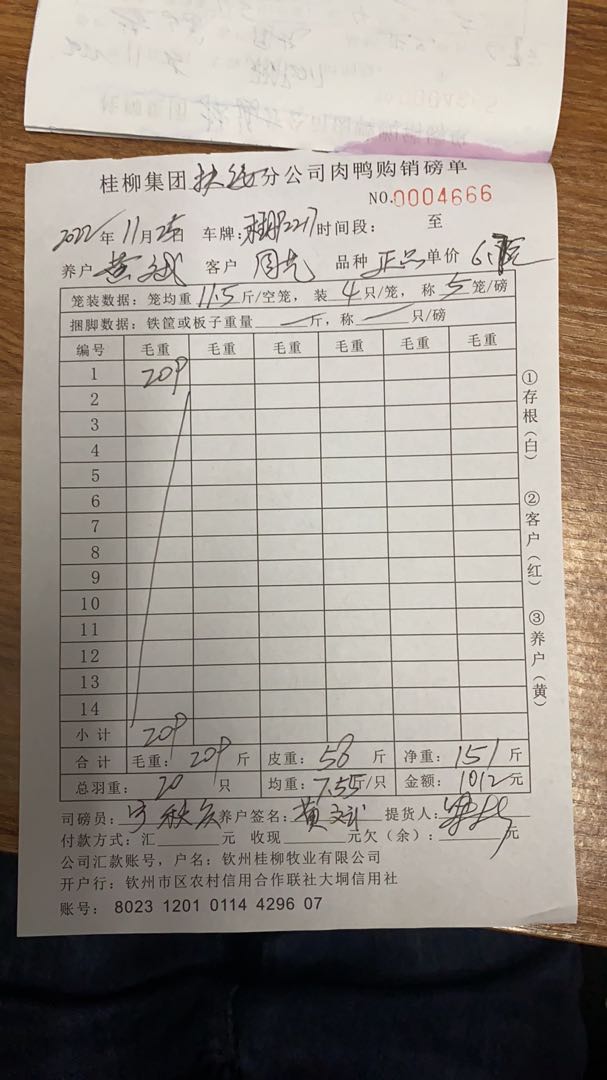 桂柳集团扶绥分公司肉鸭购销磅单
NO.0004666
2022年11月25日 车牌: 时间段: 至
养户 黄斌 客户 周先 品种 正品 单价 6.7元
笼装数据：笼均重11.5斤/空笼，装4只/笼，称5笼/磅
捆脚数据：铁筐或板子重量 斤，称 只/磅
编号 毛重 毛重 毛重 毛重 毛重 毛重
1 209
2
3
4
5
6
7
8
9
10
11
12
13
14
小计 209
合计 毛重：209斤 皮重：58斤 净重：151斤
总羽重：20只 均重：7.55/只 金额：1012元
司磅员： 养户签名：黄斌 提货人：
付款方式：汇 元 收现 元欠（余）： 元
公司汇款账号，户名：钦州桂柳牧业有限公司
开户行：钦州市区农村信用合作联社大垌信用社
账号： 8023 1201 0114 4296 07
①存根（白）
②客户（红）
③养户（黄）